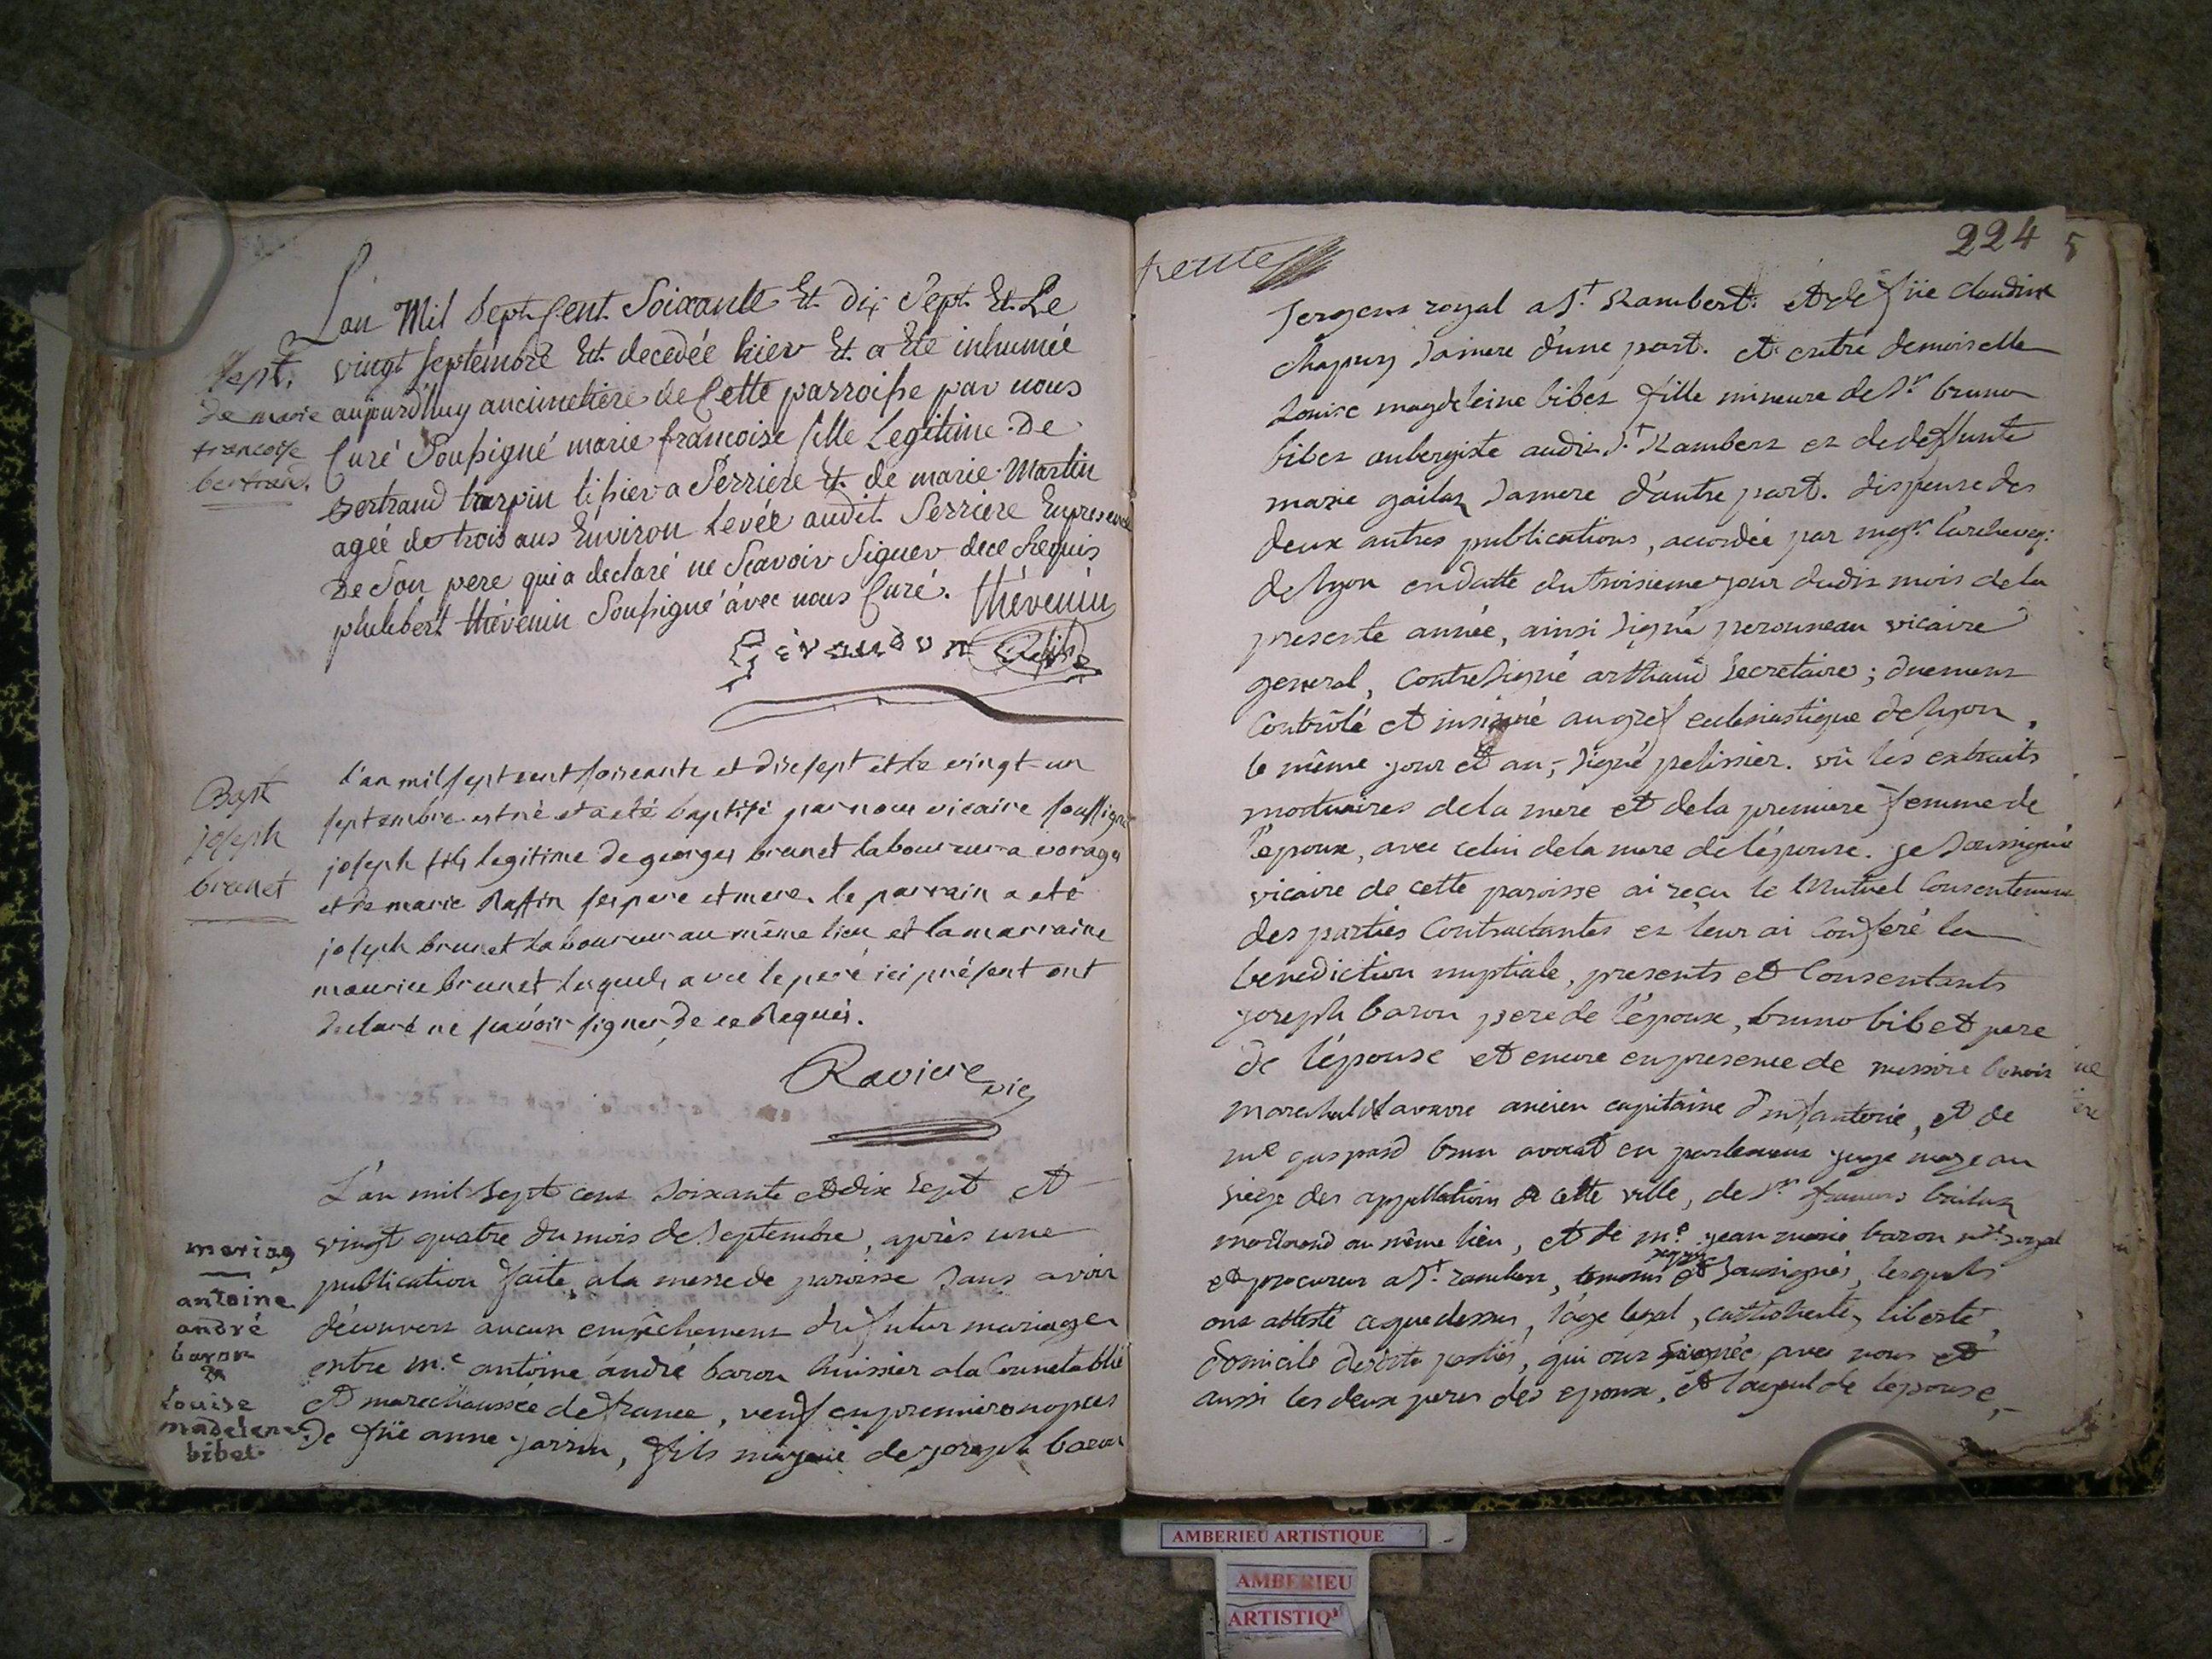 L'an Mil Sept Cent Soixante Et Dix Sept Et Le
vingt septembre Est decedée hier Et a Eté inhumée
aujourd'huy au cimetiere de Cette parroisse par nous
Curé Soussigné marie françoise fille Legitime De
Bertrand tarpin tissier a Serriere Et de marie Martin
agée de trois ans Environ Levée audit Serriere En presence
De Son pere qui a declaré ne Scavoir Signer de ce Requis
philibert thévenin Soussigné avec nous Curé. thévenin
Sept.
de marie
françoise
bertrand.
Bapt
joseph
brunet
l'an mil sept cent soixante et dixsept et le vingt un
septembre est né et a eté baptisé par nous vicaire soussigné
joseph fils legitime de georges brunet laboureur a vorages
et de marie Raffin ses pere et mere. le parrain a eté
joseph brunet laboureur au même lieu et la marraine
maurice brunet lesquels avec le pere ici présent ont
declaré ne savoir signer, de ce Requis.
Raviere vic
mariag
antoine
andré
baron
&
louise
madelene
bibet.
L'an mil sept cent soixante et dix sept et
vingt quatre du mois de septembre, après une
publication faite a la messe de paroisse sans avoir
découvert aucun empêchement du futur mariage
entre m.e antoine andré baron huissier a la Connetablie
et marechaussée de france, veuf en premiere nopces
de füe anne jarrin, fils majeur de joseph baron
224
5
Sergent royal a S.t Rambert. et de füe claudine
chapuy sa mere d'une part. et entre demoiselle
Louise magdeleine bibet fille mineure de S.r bruno
bibet aubergiste audit S.t Rambert et de deffunte
marie gailar sa mere d'autre part. dispense des
deux autres publications, accordée par mgr. l'archeveq:
de lyon en datte du troisieme jour dudit mois de la
presente année, ainsi signé peronneau vicaire
general, Contresigné arthaud Secretaire; duement
Controlé et insinué au gref eclesiastique de lyon,
le même jour et an, signé pelissier. vû les extraits
mortuaires de la mere et de la premiere femme de
l'epoux, avec celui de la mere de l'épouse. je soussigné
vicaire de cette paroisse ai reçu le Mutuel Consentement
des parties Contractantes et leur ai Conferé la
benediction nuptiale, presents et Consentants
joseph baron pere de l'époux, bruno bibet pere
de l'épouse et encore en presence de messire benoit
ancien capitaine d'infanterie, et de
me gaspard brun avocat en parlement juge mage au
siege des appellations de cette ville, de S.r françois
marchand au même lieu, et de m.e jean marie baron n.re royal
et procureur a S.t rambert, temoins requis et soussignés, lesquels
ont attesté a que dessus, l'age legal, catholicité, liberté,
domicile desdites parties, qui ont signée avec nous et
aussi les deux peres des epoux, et l'ayeul de l'epouse,
AMBERIEU ARTISTIQUE
AMBERIEU
ARTISTIQ